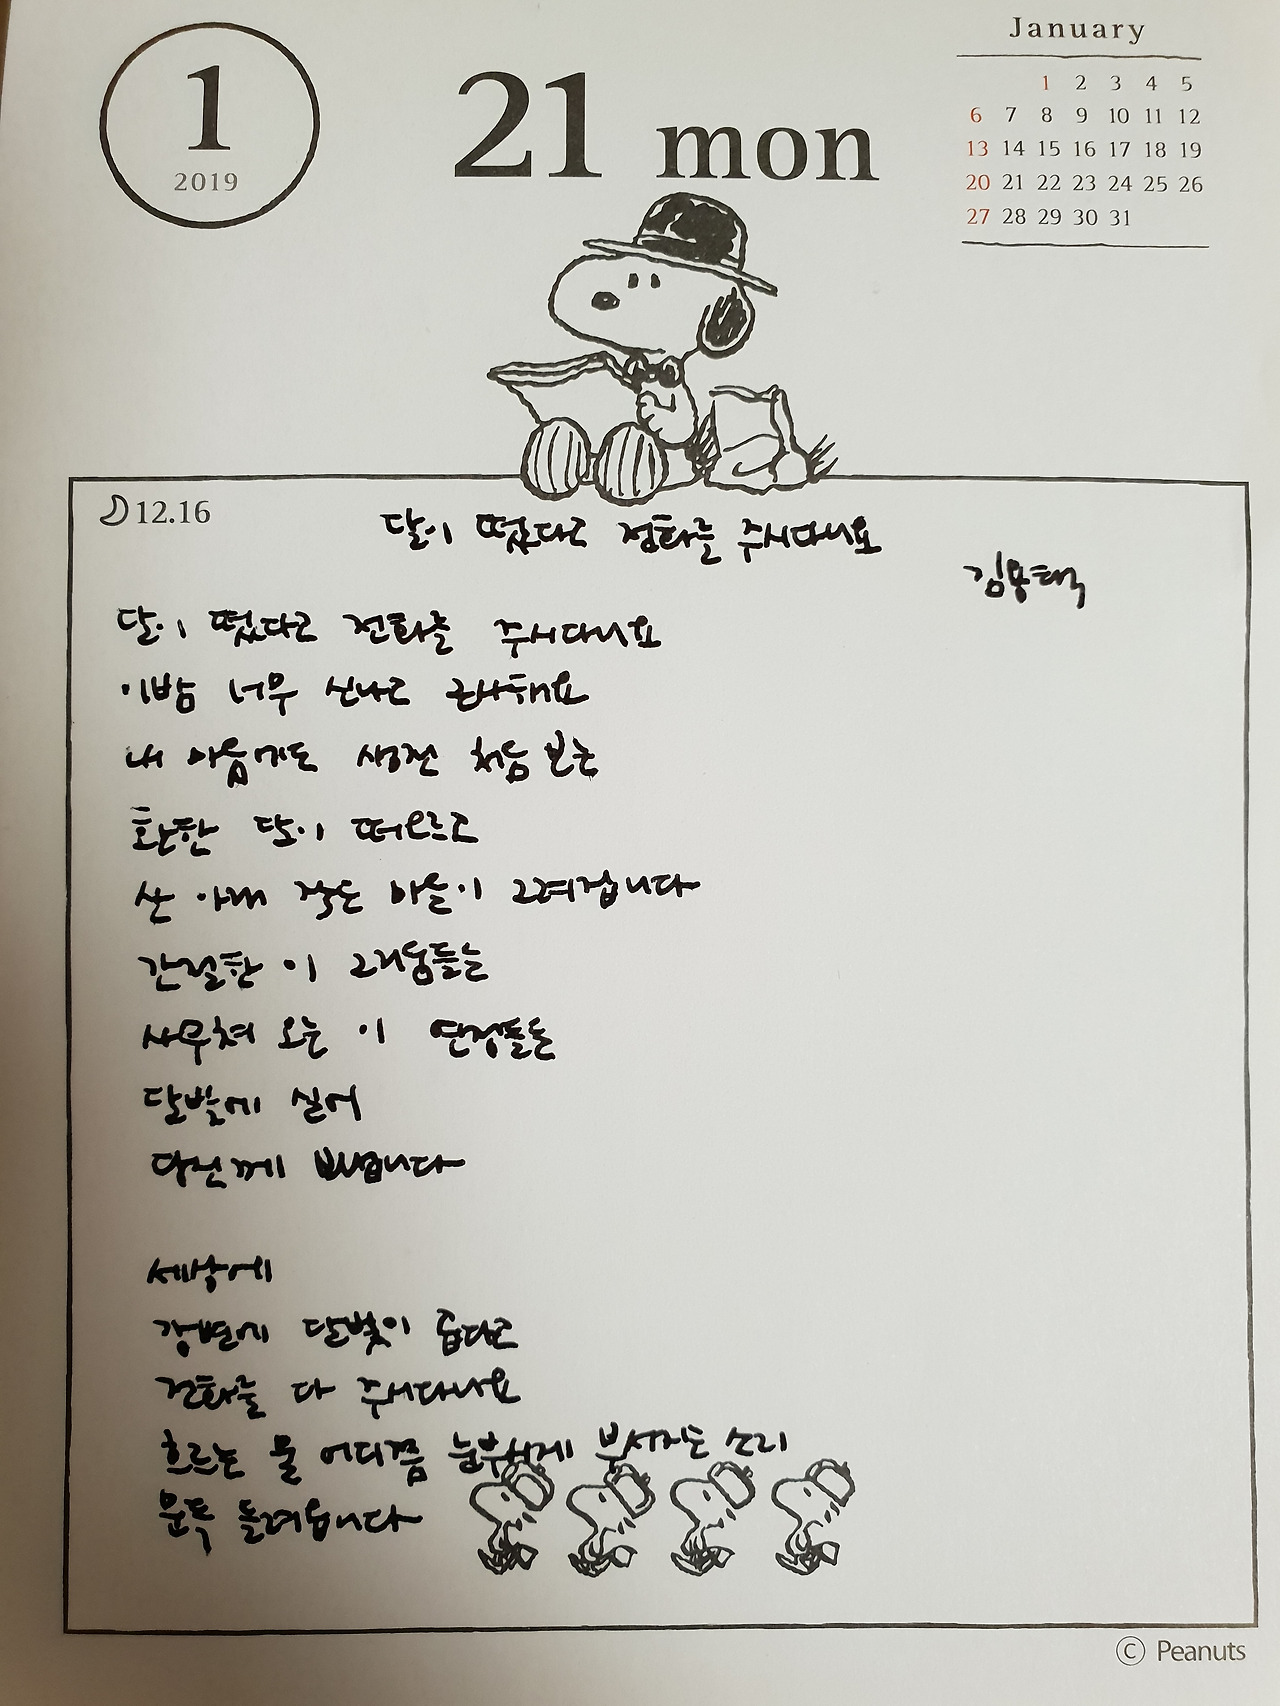 1
2019
21 mon
January
1 2 3 4 5
6 7 8 9 10 11 12
13 14 15 16 17 18 19
20 21 22 23 24 25 26
27 28 29 30 31
12.16
달이 떴다고 전화를 주시다니요
김용택
달이 떴다고 전화를 주시다니요
이밤 너무 신나고 근사해요
내 마음에도 생전 처음 보는
환한 달이 떠오르고
산 아래 작은 마을이 그려집니다
간절한 이 그리움들을
사무쳐 오는 이 연정들을
달빛에 실어
당신께 보냅니다
세상에
강변에 달빛이 곱다고
전화를 다 주시다니요
흐르는 물 어디쯤 눈부시게 부서지는 소리
문득 들려옵니다
© Peanuts